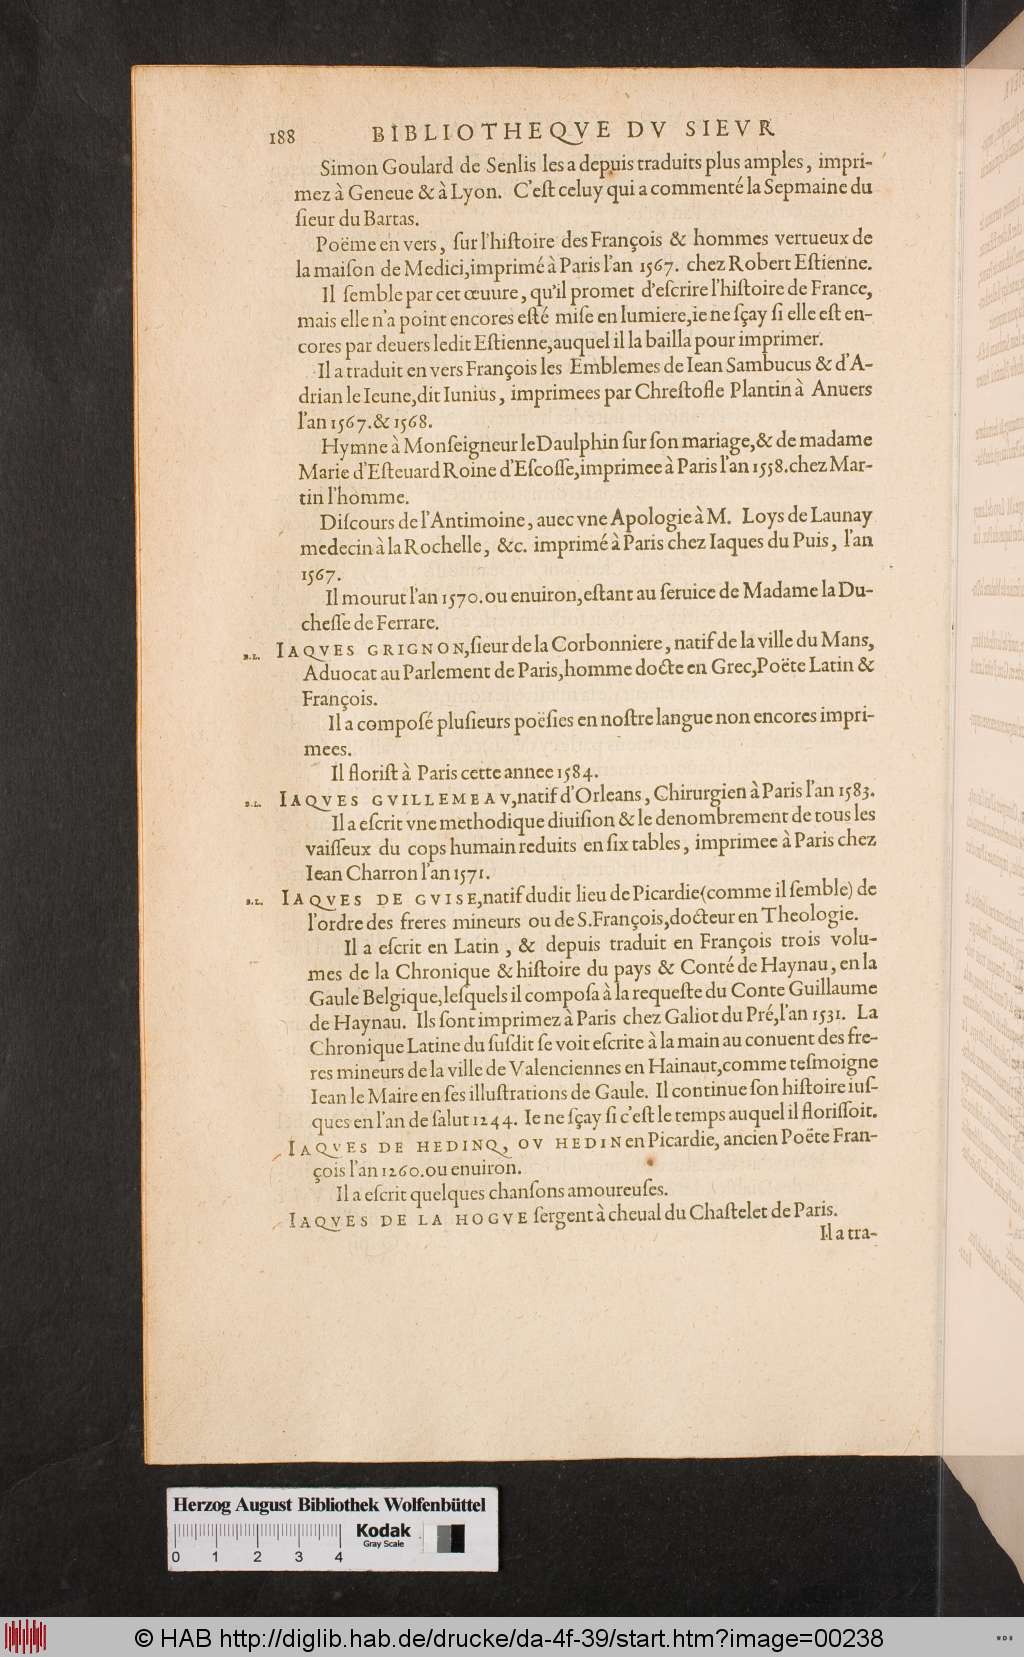 188 BIBLIOTHEQVE DV SIEVR
Simon Goulard de Senlis les a depuis traduits plus amples, impri-
mez à Geneue & à Lyon. C'eſt celuy qui a commenté la Sepmaine du
ſieur du Bartas.
Poëme en vers, ſur l'hiſtoire des François & hommes vertueux de
la maiſon de Medici, imprimé à Paris l'an 1567. chez Robert Eſtienne.
Il ſemble par cet œuure, qu'il promet d'eſcrire l'hiſtoire de France,
mais elle n'a point encores eſté miſe en lumiere, ie ne ſçay ſi elle eſt en-
cores par deuers ledit Eſtienne, auquel il la bailla pour imprimer.
Il a traduit en vers François les Emblemes de Iean Sambucus & d'A-
drian le Ieune, dit Iunius, imprimees par Chreſtofle Plantin à Anuers
l'an 1567. & 1568.
Hymne à Monſeigneur le Daulphin ſur ſon mariage, & de madame
Marie d'Eſteuard Roine d'Eſcoſſe, imprimee à Paris l'an 1558. chez Mar-
tin l'homme.
Diſcours de l'Antimoine, auec vne Apologie à M. Loys de Launay
medecin à la Rochelle, &c. imprimé à Paris chez Iaques du Puis, l'an
1567.
Il mourut l'an 1570. ou enuiron, eſtant au ſeruice de Madame la Du-
cheſſe de Ferrare.
B.L. IAQVES GRIGNON, ſieur de la Corbonniere, natif de la ville du Mans,
Aduocat au Parlement de Paris, homme docte en Grec, Poëte Latin &
François.
Il a compoſé pluſieurs poëſies en noſtre langue non encores impri-
mees.
Il floriſt à Paris cette annee 1584.
B.L. IAQVES GVILLEMEAV, natif d'Orleans, Chirurgien à Paris l'an 1583.
Il a eſcrit vne methodique diuiſion & le denombrement de tous les
vaiſſeux du cops humain reduits en ſix tables, imprimee à Paris chez
Iean Charron l'an 1571.
B.L. IAQVES DE GVISE, natif dudit lieu de Picardie (comme il ſemble) de
l'ordre des freres mineurs ou de S. François, docteur en Theologie.
Il a eſcrit en Latin, & depuis traduit en François trois volu-
mes de la Chronique & hiſtoire du pays & Conté de Haynau, en la
Gaule Belgique, leſquels il compoſa à la requeſte du Conte Guillaume
de Haynau. Ils ſont imprimez à Paris chez Galiot du Pré, l'an 1531. La
Chronique Latine du ſuſdit ſe voit eſcrite à la main au conuent des fre-
res mineurs de la ville de Valenciennes en Hainaut, comme teſmoigne
Iean le Maire en ſes illuſtrations de Gaule. Il continue ſon hiſtoire iuſ-
ques en l'an de ſalut 1244. Ie ne ſçay ſi c'eſt le temps auquel il floriſſoit.
IAQVES DE HEDINQ, OV HEDIN en Picardie, ancien Poëte Fran-
çois l'an 1260. ou enuiron.
Il a eſcrit quelques chanſons amoureuſes.
IAQVES DE LA HOGVE ſergent à cheual du Chaſtelet de Paris.
Il a tra-
Herzog August Bibliothek Wolfenbüttel
Kodak
Gray Scale
0 1 2 3 4
© HAB http://diglib.hab.de/drucke/da-4f-39/start.htm?image=00238